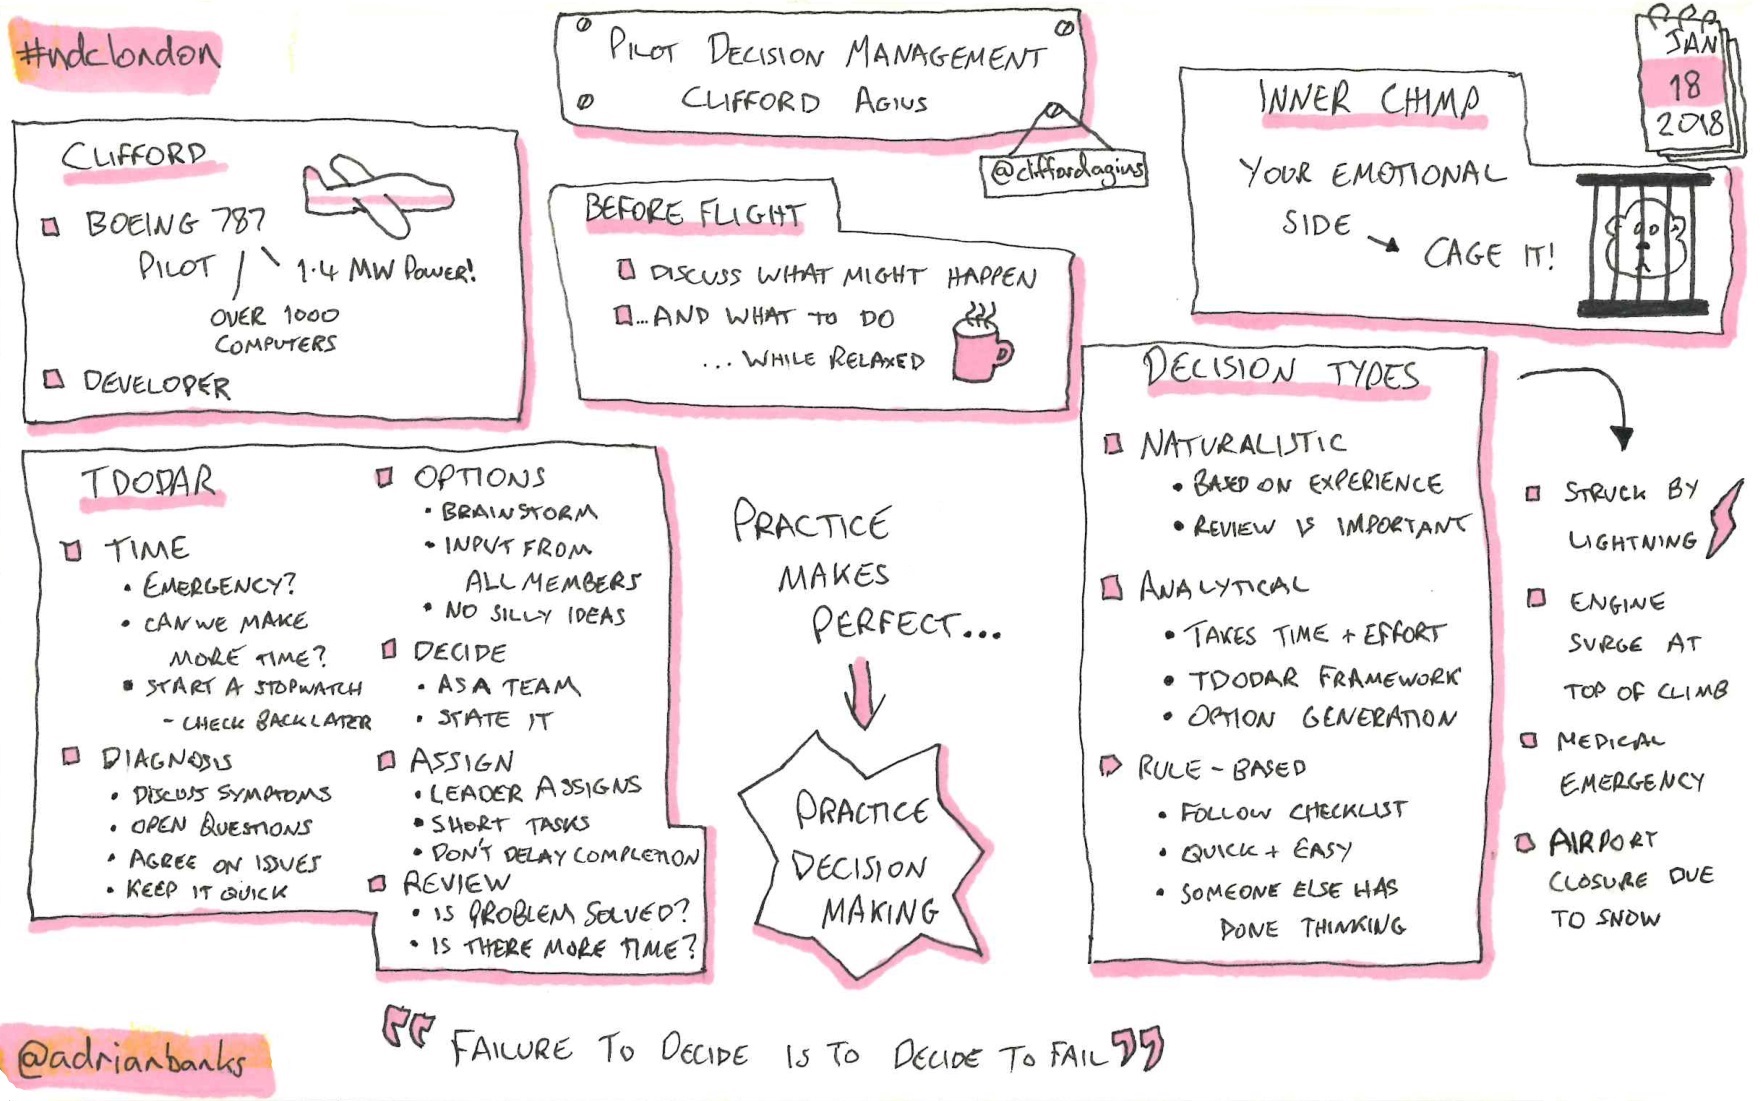 #ndclondon
PILOT DECISION MANAGEMENT
CLIFFORD AGIUS
@cliffordagius
JAN
18
2018
CLIFFORD
BOEING 787
PILOT
1.4 MW POWER!
OVER 1000
COMPUTERS
DEVELOPER
BEFORE FLIGHT
DISCUSS WHAT MIGHT HAPPEN
...AND WHAT TO DO
... WHILE RELAXED
INNER CHIMP
YOUR EMOTIONAL
SIDE
CAGE IT!
TDODAR
TIME
• EMERGENCY?
• CAN WE MAKE
MORE TIME?
• START A STOPWATCH
- CHECK BACK LATER
DIAGNOSIS
• DISCUSS SYMPTOMS
• OPEN QUESTIONS
• AGREE ON ISSUES
• KEEP IT QUICK
OPTIONS
• BRAINSTORM
• INPUT FROM
ALL MEMBERS
• NO SILLY IDEAS
DECIDE
• AS A TEAM
• STATE IT
ASSIGN
• LEADER ASSIGNS
• SHORT TASKS
• DON'T DELAY COMPLETION
REVIEW
• IS PROBLEM SOLVED?
• IS THERE MORE TIME?
PRACTICE
MAKES
PERFECT...
PRACTICE
DECISION
MAKING
DECISION TYPES
NATURALISTIC
• BASED ON EXPERIENCE
• REVIEW IS IMPORTANT
ANALYTICAL
• TAKES TIME + EFFORT
• TDODAR FRAMEWORK
• OPTION GENERATION
RULE-BASED
• FOLLOW CHECKLIST
• QUICK + EASY
• SOMEONE ELSE HAS
DONE THINKING
STRUCK BY
LIGHTNING
ENGINE
SURGE AT
TOP OF CLIMB
MEDICAL
EMERGENCY
AIRPORT
CLOSURE DUE
TO SNOW
@adrianbanks
“FAILURE TO DECIDE IS TO DECIDE TO FAIL”